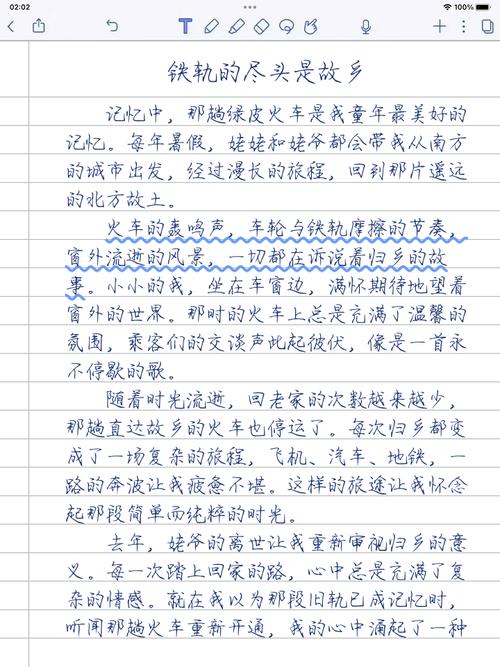 02:02
100%
T
铁轨的尽头是故乡
记忆中，那趟绿皮火车是我童年最美好的
记忆。每年暑假，姥姥和姥爷都会带我从南方
的城市出发，经过漫长的旅程，回到那片遥远
的北方故土。
火车的轰鸣声，车轮与铁轨摩擦的节奏，
窗外流逝的风景，一切都在诉说着归乡的故
事。小小的我，坐在车窗边，满怀期待地望着
窗外的世界。那时的火车上总是充满了温馨的
氛围，乘客们的交谈声此起彼伏，像是一首永
不停歇的歌。
随着时光流逝，回老家的次数越来越少，
那趟直达故乡的火车也停运了。每次归乡都变
成了一场复杂的旅程，飞机、汽车、地铁，一
路的奔波让我疲惫不堪。这样的旅途让我怀念
起那段简单而纯粹的时光。
去年，姥爷的离世让我重新审视归乡的意
义。每一次踏上回家的路，心中总是充满了复
杂的情感。就在我以为那段旧轨已成记忆时，
听闻那趟火车重新开通，我的心中涌起了一种